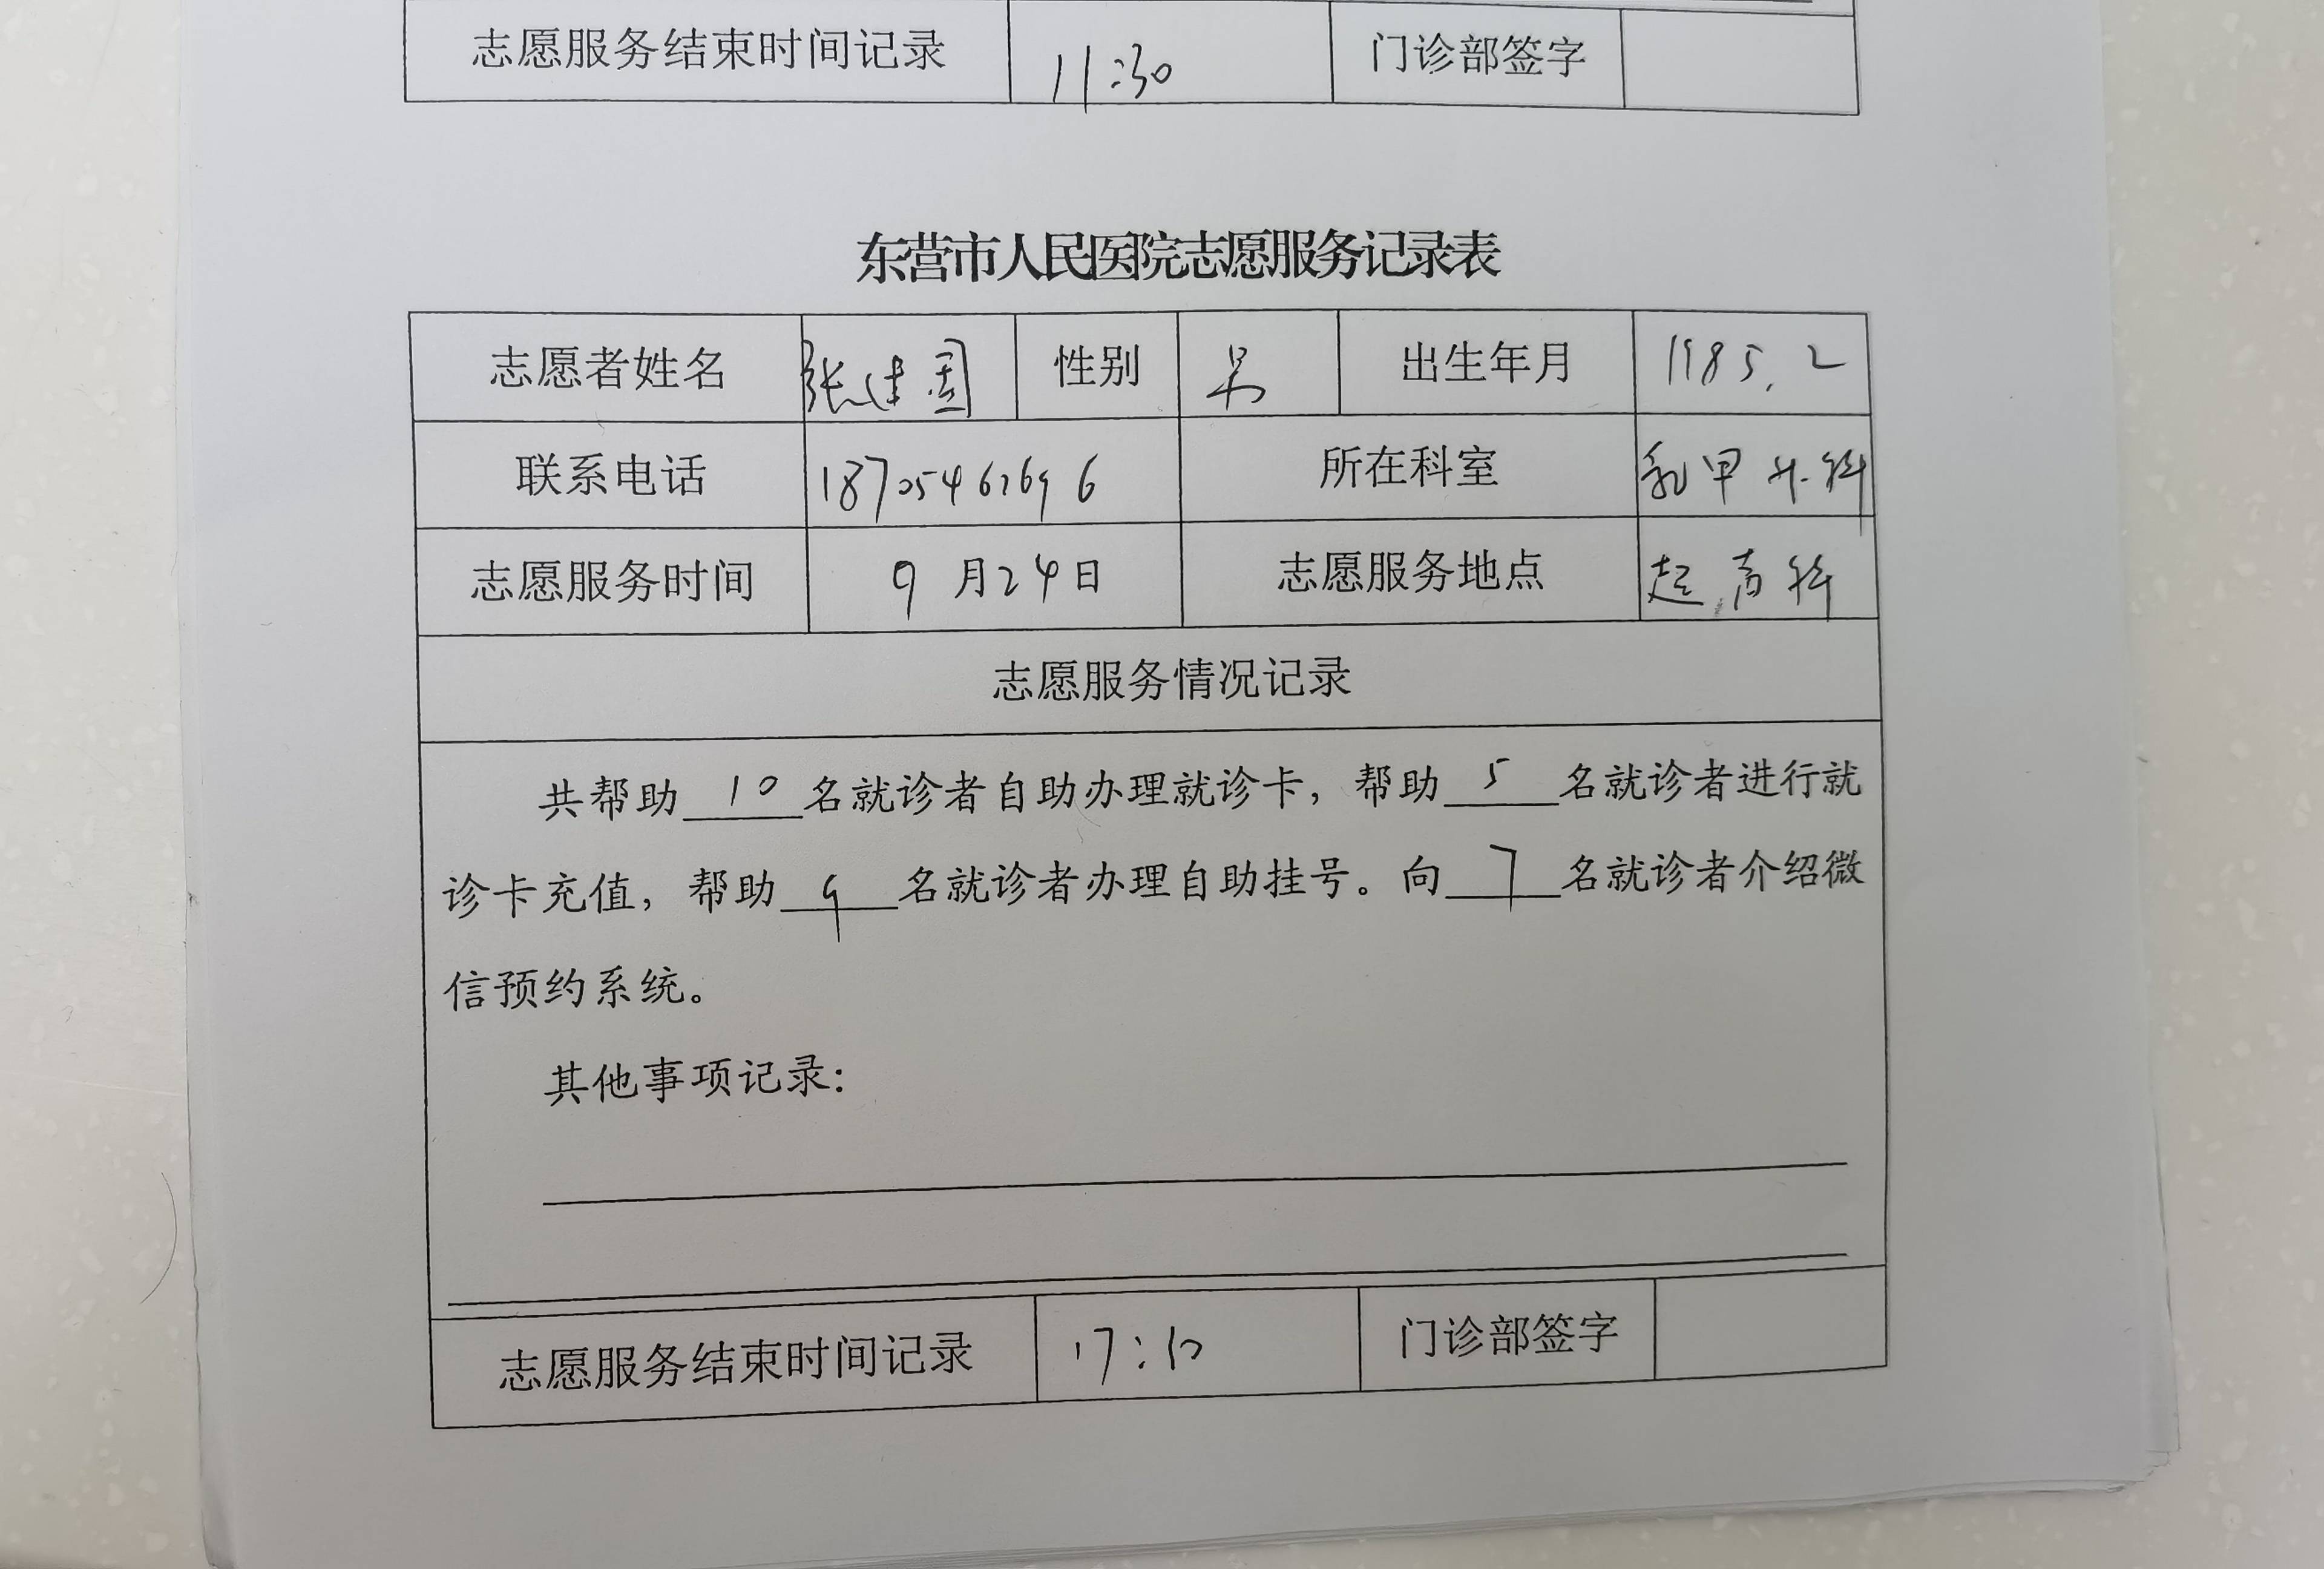 志愿服务结束时间记录 11:30 门诊部签字
东营市人民医院志愿服务记录表
志愿者姓名 张建国 性别 男 出生年月 1985.2
联系电话 18705462696 所在科室 乳甲外科
志愿服务时间 9月24日 志愿服务地点 超声科
志愿服务情况记录
共帮助10名就诊者自助办理就诊卡，帮助5名就诊者进行就
诊卡充值，帮助9名就诊者办理自助挂号。向7名就诊者介绍微
信预约系统。
其他事项记录：
志愿服务结束时间记录 17:10 门诊部签字